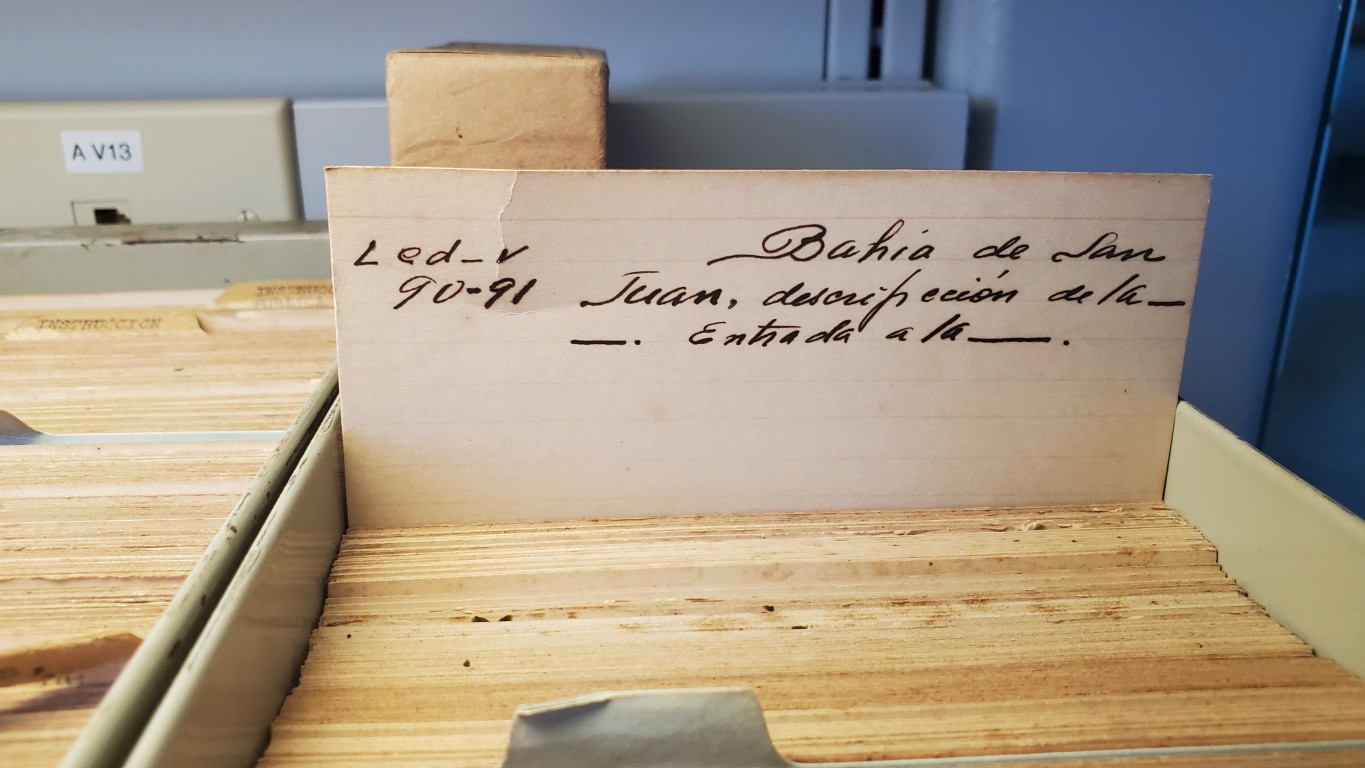 A V13
INSTRUC
INSTRUCCIÓN
Led-v Bahia de San
90-91 Juan, descripección de la —
—. Entrada a la —.